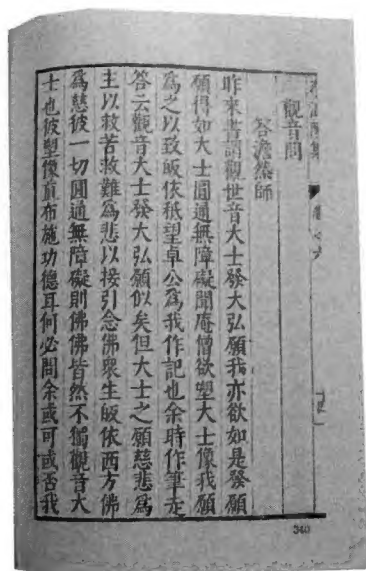 觀音問
答澹然師
昨來書謂觀世音大士發大弘願我亦欲如是發願
願得如大士圓通無障礙聞庵僧欲塑大士像我願
為之以致皈依秪望卓公為我作記也余時作筆走
答云觀音大士發大弘願似矣但大士之願慈悲為
主以救苦救難為悲以接引念佛衆生皈依西方佛
為慈彼一切圓通無障礙則佛佛皆然不獨觀音大
士也彼塑像直布施功德耳何必問余或可或否我
340